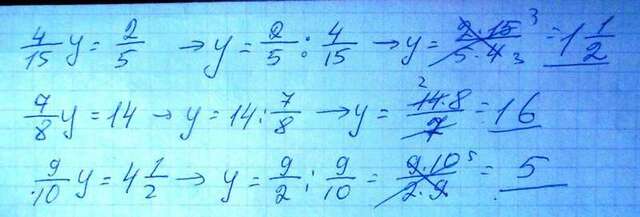 4/15 y = 2/5 → y = 2/5 : 4/15 → y = 2·15/5·4 3 3 = 1 1/2
7/8 y = 14 → y = 14 : 7/8 → y = 2 14·8/7 = 16
9/10 y = 4 1/2 → y = 9/2 : 9/10 = 9·10/2·9 5 = 5